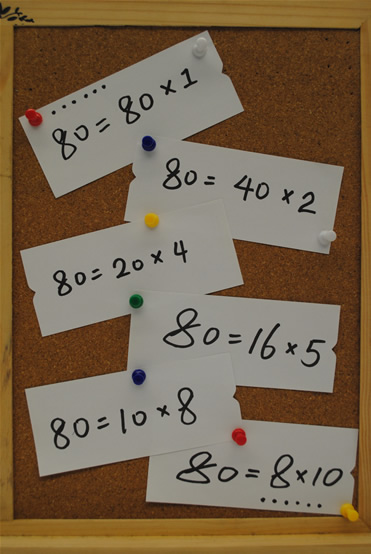 ......
80 = 80 × 1
80 = 40 × 2
80 = 20 × 4
80 = 16 × 5
80 = 10 × 8
80 = 8 × 10
......